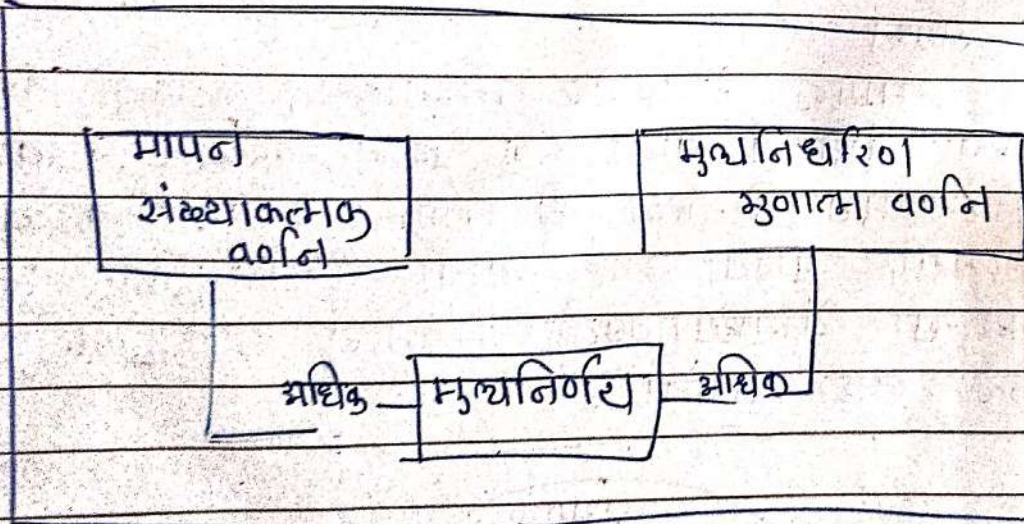 मापन
संख्याकत्मक
वर्णन
मुल्यनिर्धारण
गुणात्म वर्णन
अधिक
मुल्यनिर्णय
अधिक